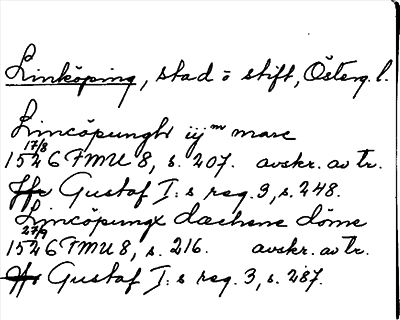 Linköping, stad o stift, Österg. l.
Lincöpungh iijm marc
17/8
1526 FMU 8, s. 207. avskr. av tr.
Jfr Gustaf I:s reg. 3, s. 248.
Lincöpungx dæchene döme
27/9
1526 FMU 8, s. 216. avskr. av tr.
Jfr Gustaf I:s reg. 3, s. 287.